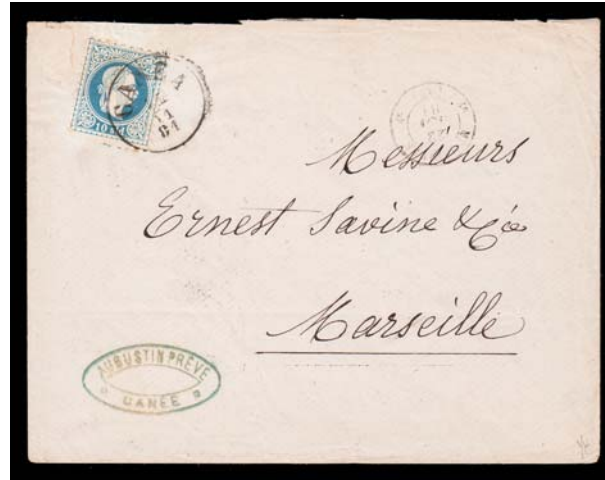 10
CANEA
81
Messieurs
Ernest Savine & Cie
Marseille
AUGUSTIN PRÊVE
CANÉE